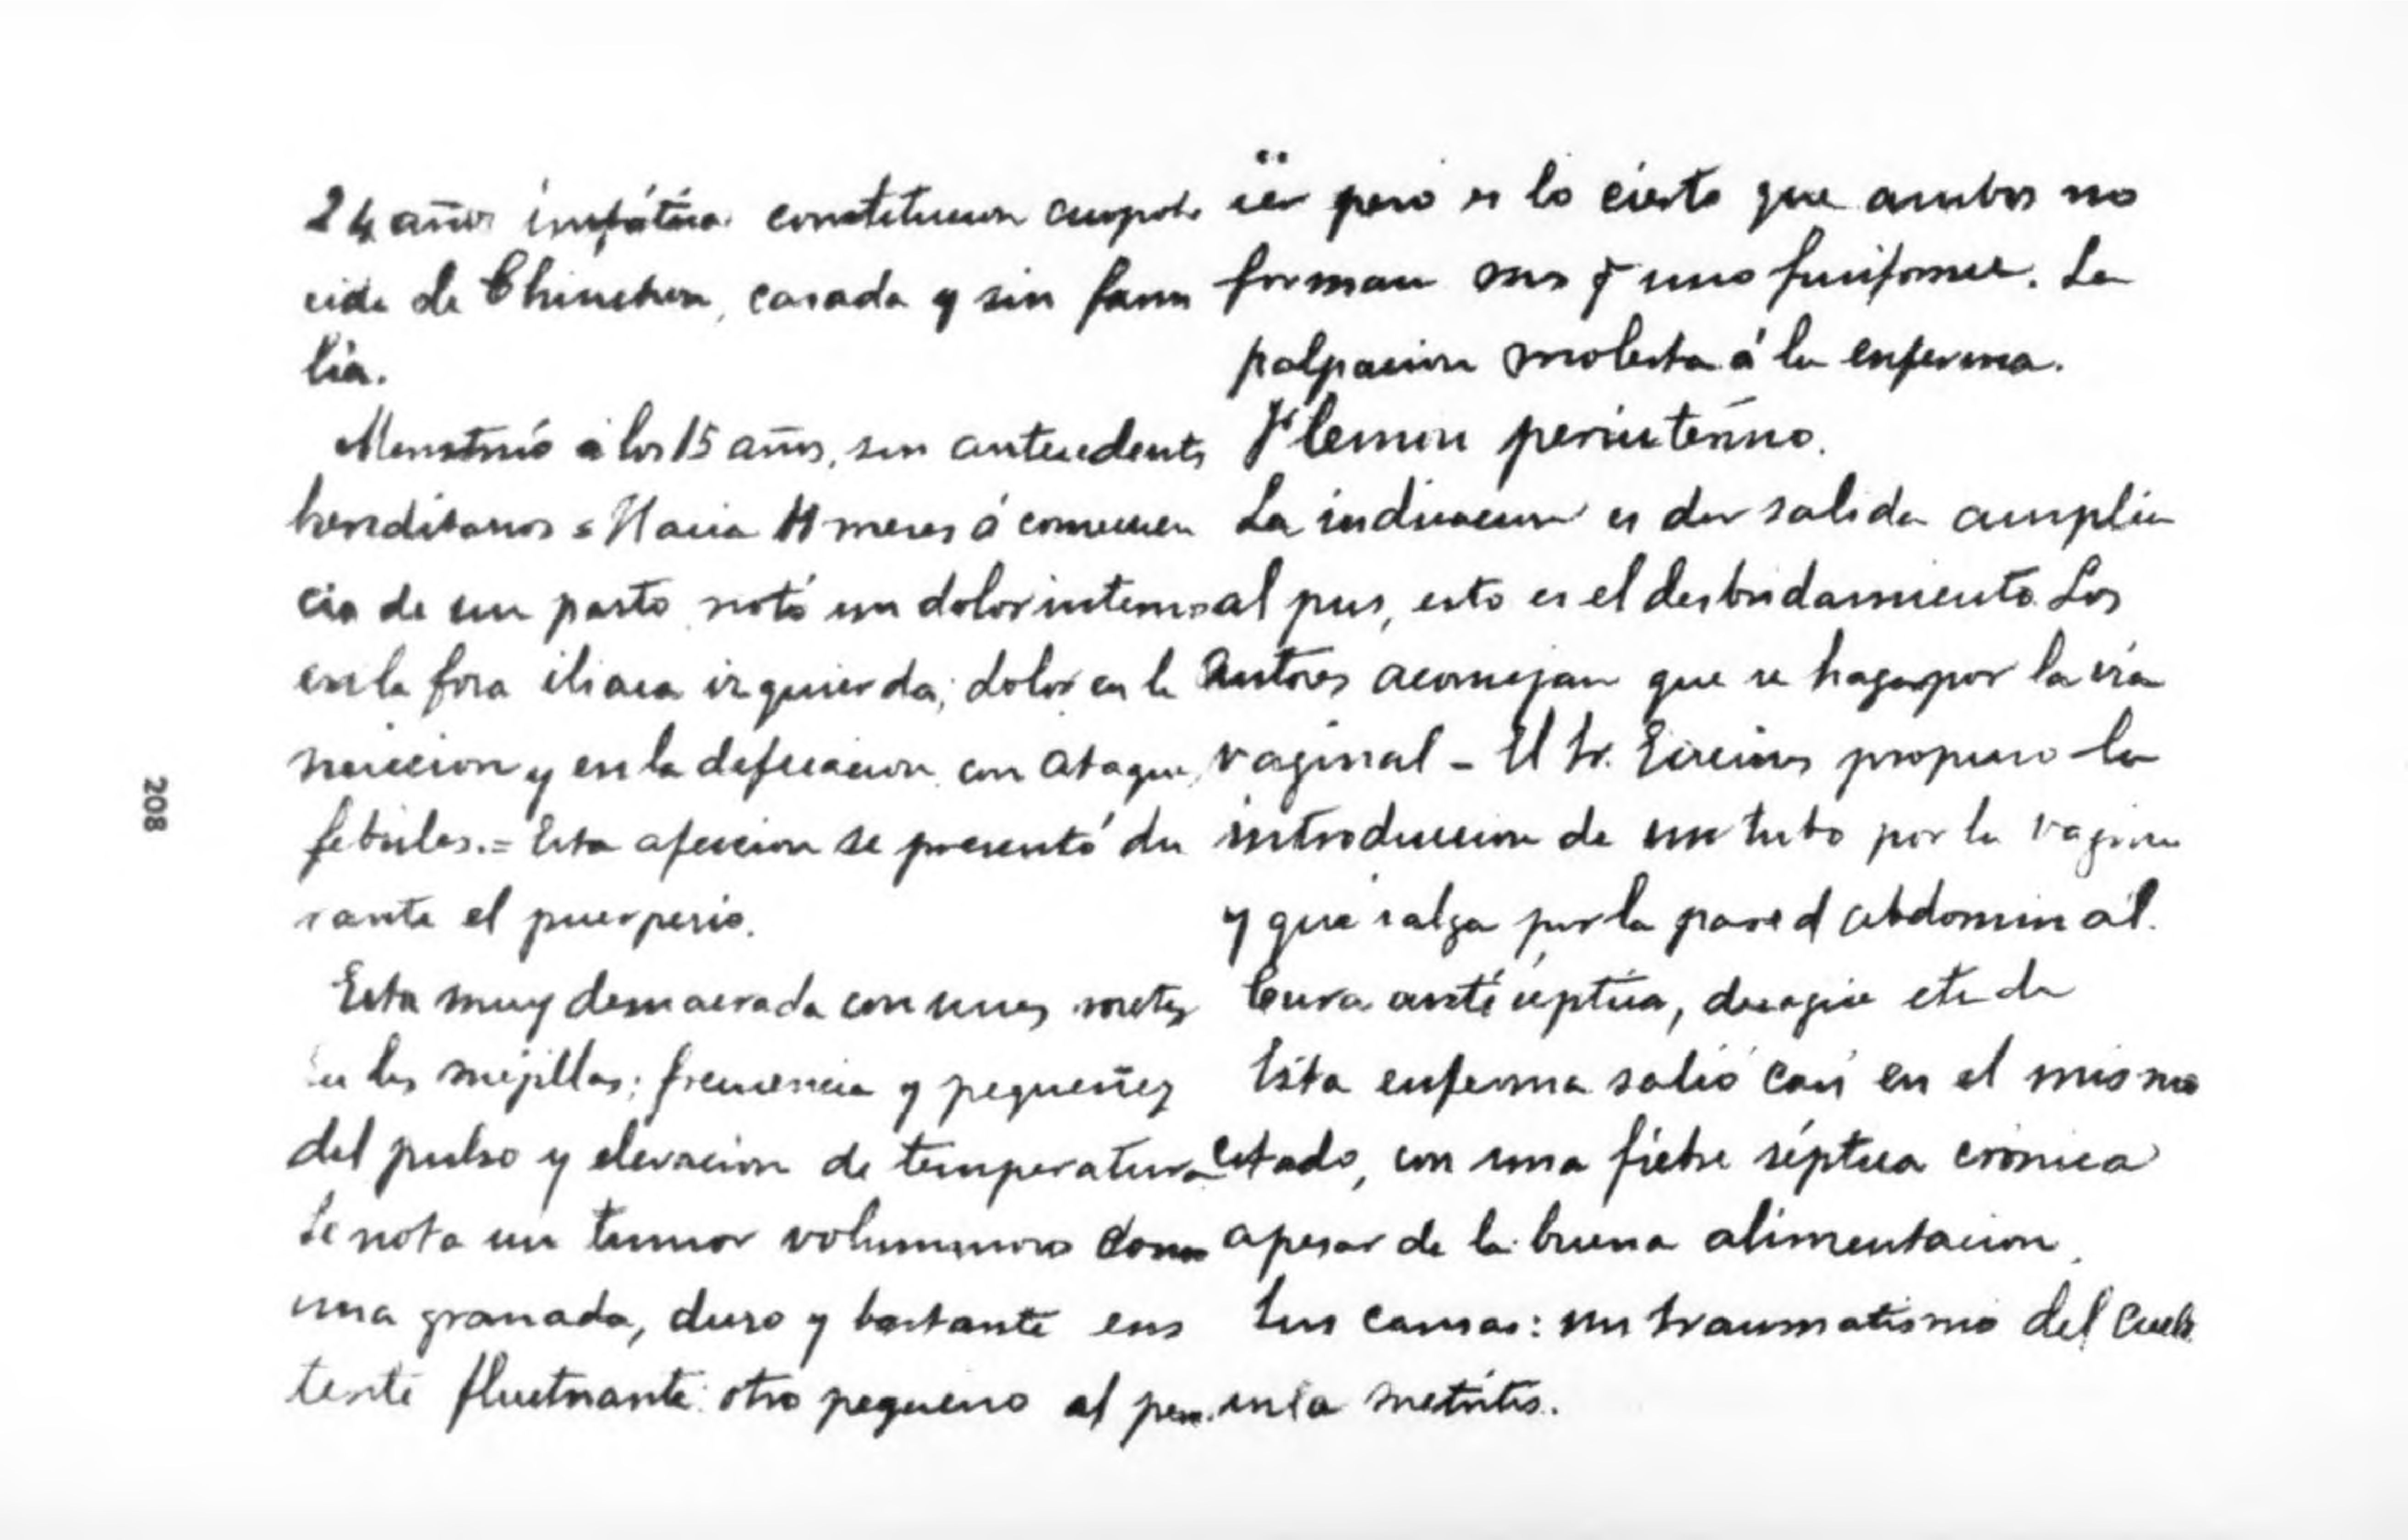 24 años linfática constitucion empobre
cida de Chinchon, casada y sin fami
lia.
Menstruó á los 15 años, sin antecedents
hereditarios = Hacia 11 meses á consecuen
cia de un parto notó un dolor intenso
en la fosa iliaca izquierda; dolor en la
miccion y en la defecacion con ataques
febriles. = Esta afeccion se presentó du
rante el puerperio.
Esta muy demacrada con unas rosetas
en las mejillas; frecuencia y pequeñez
del pulso y elevacion de temperatura
Se nota un tumor voluminoso como
una granada, duro y bastante ens
tente fluctuante otro pequeno al
cer pero es lo cierto que ambos no
forman mas q̃ uno fusiforme. La
palpacion molesta á la enferma.
Flemon periuterino.
La indicacion es dar salida amplia
al pus, esto es el desbridamiento. Los
Autores aconsejan que se haga por la via
vaginal - El Sr. propuso la
introduccion de un tubo por la vagina
y que salga por la pared abdominal.
Cura antiséptica, desagüe etc da
Esta enferma salió casi en el mismo
estado, con una fiebre séptica crónica
apesar de la buena alimentacion
Sus causas: un traumatismo del cuello
en la metritis.
208